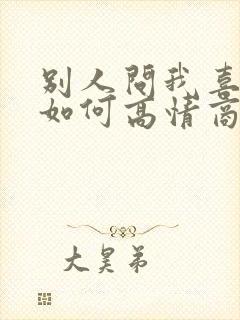 别人問我喜
如何高情商
大昊弟